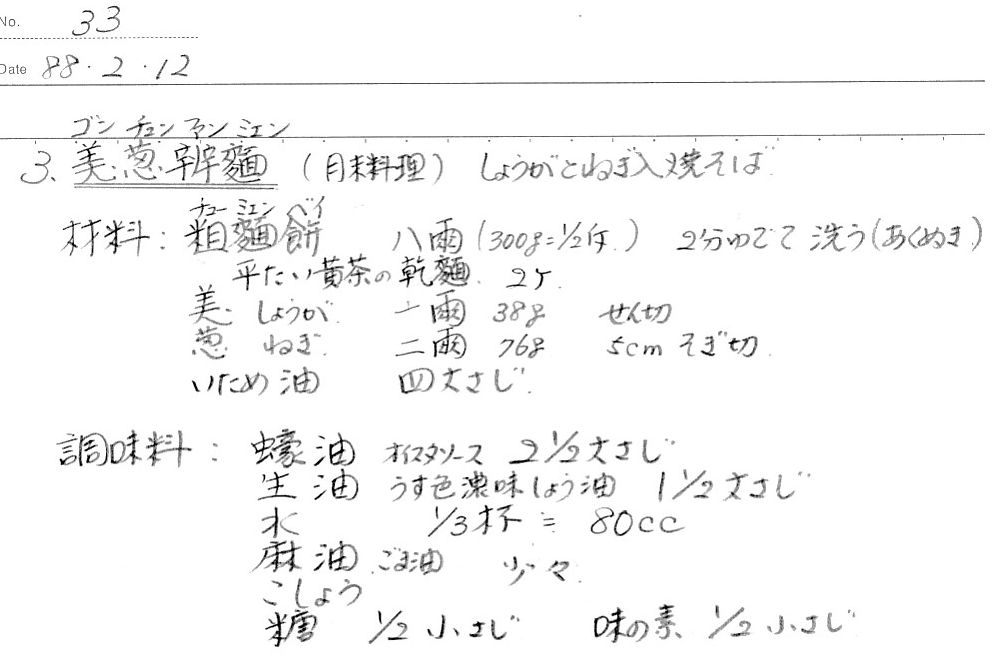 No. 33
Date 88・2・12
ゴン チュン マン ミェン
3. 美葱辦麵 (月末料理) しょうがとねぎ入焼そば
チューミェンベイ
材料: 粗麵餅 八両 (300g=1/2斤) 2分ゆでて 洗う(あくぬき)
平たい黄茶の乾麵 2ケ
美 しょうが 一両 38g せん切
葱 ねぎ 二両 76g 5cm そぎ切
いため油 四大さじ
調味料: 蠔油 オイスターソース 2 1/2大さじ
生油 うす色濃味しょう油 1 1/2大さじ
水 1/3杯 ≒ 80cc
麻油 ごま油 少々
こしょう
糖 1/2 小さじ 味の素 1/2 小さじ